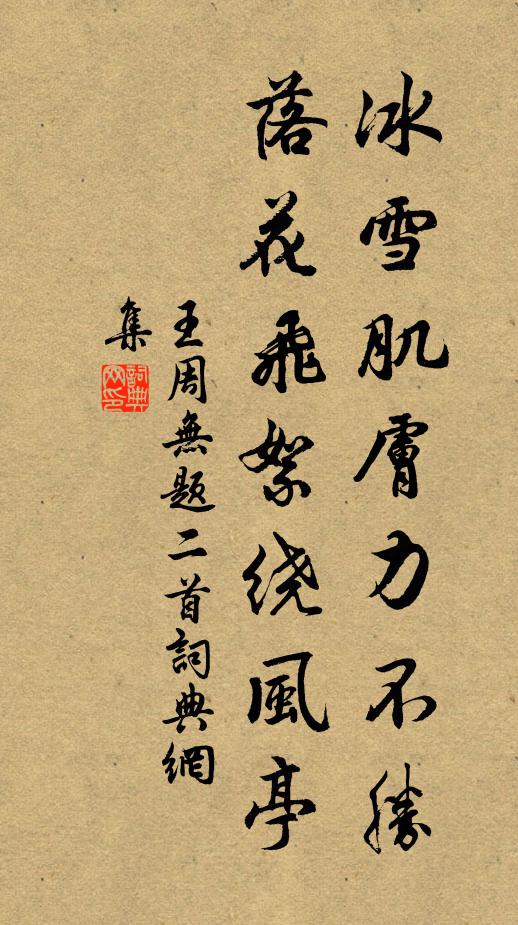 冰雪肌膚力不勝
落花飛絮繞風亭
王周無题二首詞典網
集
詞典網印